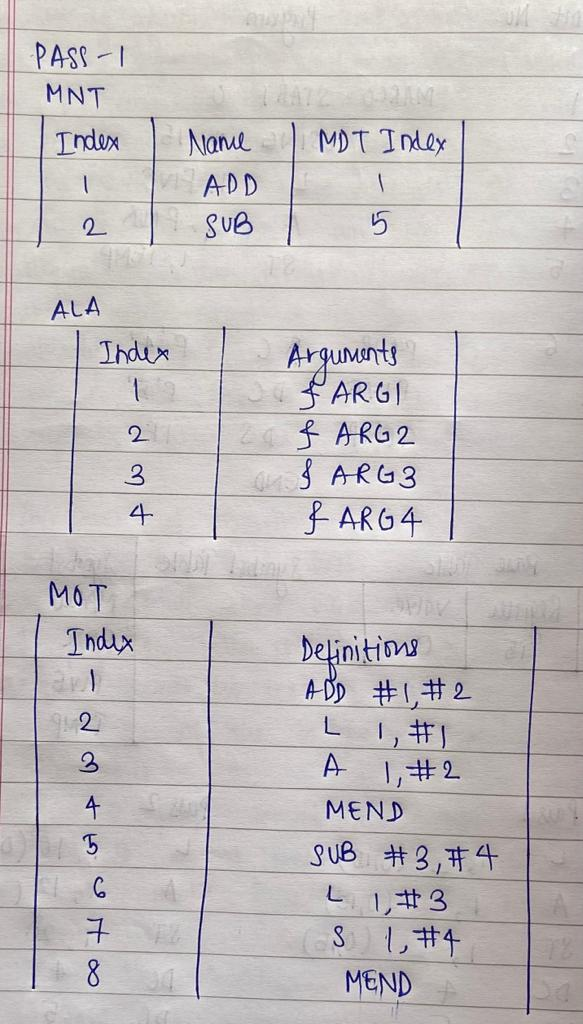 PASS-1
MNT
Index Name MDT Index
1 ADD 1
2 SUB 5
ALA
Index Arguments
1 & ARG1
2 & ARG2
3 & ARG3
4 & ARG4
MOT
Index Definitions
1 ADD #1, #2
2 L 1, #1
3 A 1, #2
4 MEND
5 SUB #3, #4
6 L 1, #3
7 S 1, #4
8 MEND